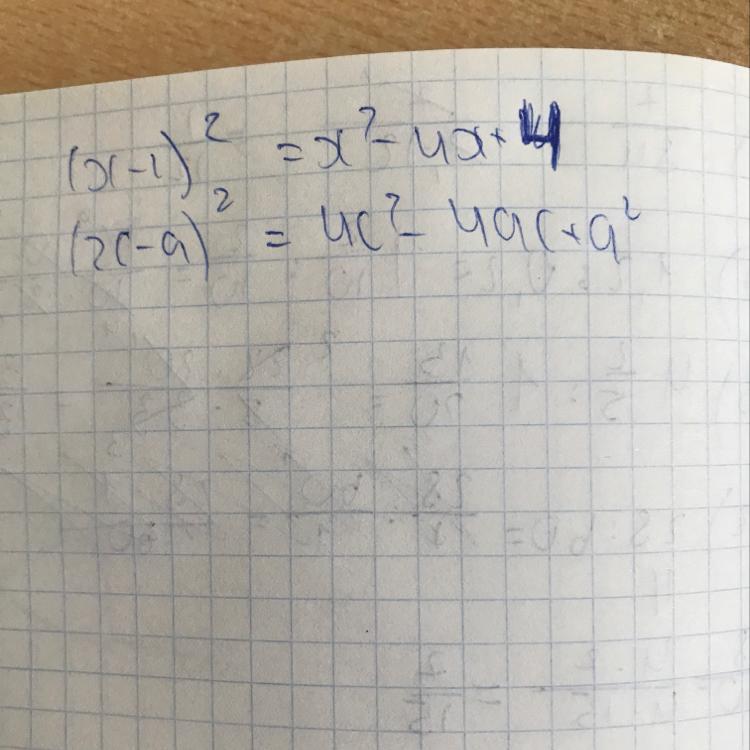 (x-1)² = x² - 4x + 4
(2c-a)² = 4c² - 4ac + a²